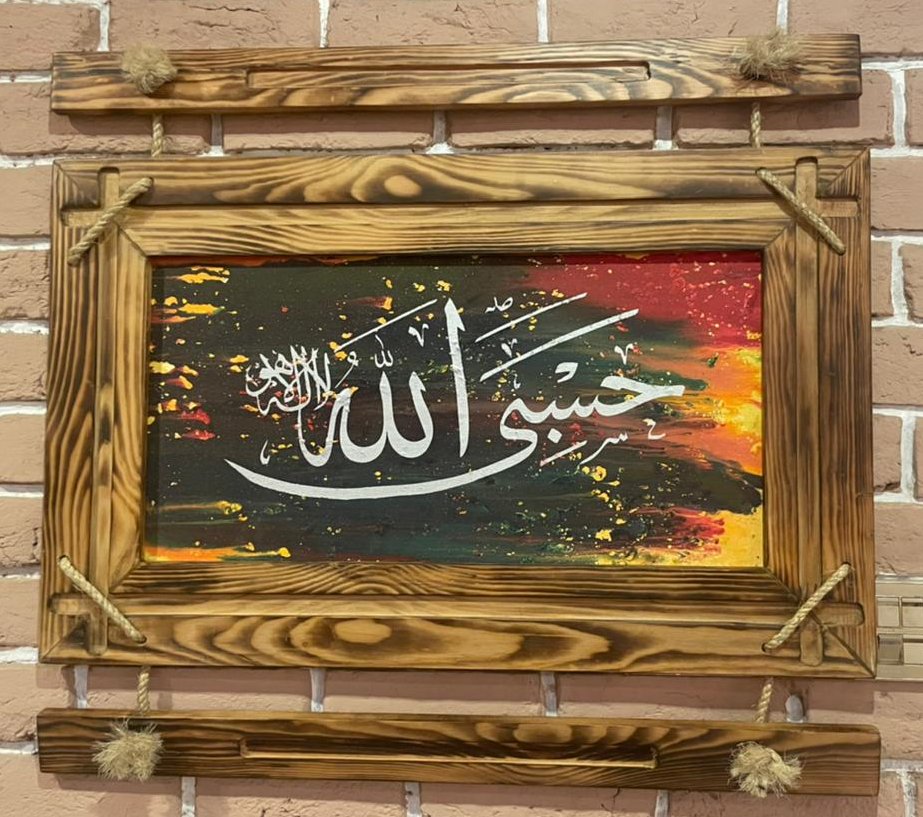 حسبي الله لا إله إلا هو